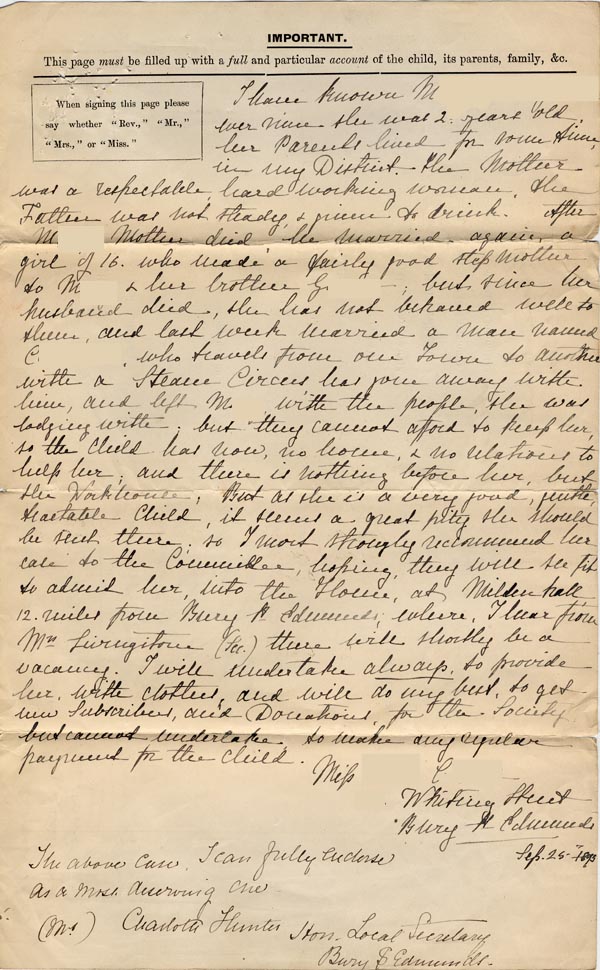 IMPORTANT.
This page must be filled up with a full and particular account of the child, its parents, family, &c.
When signing this page please
say whether "Rev.," "Mr.,"
"Mrs.," or "Miss."
I have known M
ever since she was 2 years old,
her Parents lived for some time,
in my District. The Mother
was a respectable, hard working woman, the
Father was not steady, & given to drink. After
M Mother died, he married again, a
girl of 16. who made a fairly good step Mother
to M & her brother G ; but since her
husband died, she has not behaved well to
them, and last week married a man named
C. , who travels from one Town to another
with a Steam Circus has gone away with
him, and left M with the people, she was
lodging with; but they cannot afford to keep her,
so the child has now, no home, & no relations to
help her, and there is nothing before her, but
the Workhouse; But as she is a very good, gentle,
tractable child, it seems a great pity she should
be sent there, so I most strongly recommend her
case to the Committee, hoping, they will see fit
to admit her, into the Home, at Mildenhall
12. miles from Bury St Edmunds, where, I hear from
Mrs Livingstone (Sec.) there will shortly be a
vacancy. I will undertake always, to provide
her, with clothes, and will do my best, to get
new Subscribers, and Donations, for the Society,
but cannot undertake to make any regular
payment for the child.
Miss L
Whiting Street
Bury St Edmunds
Sep. 25th 1893
The above case, I can fully endorse
as a most deserving one
(Mrs) Charlotte Hunter Hon. Local Secretary
Bury St Edmunds.